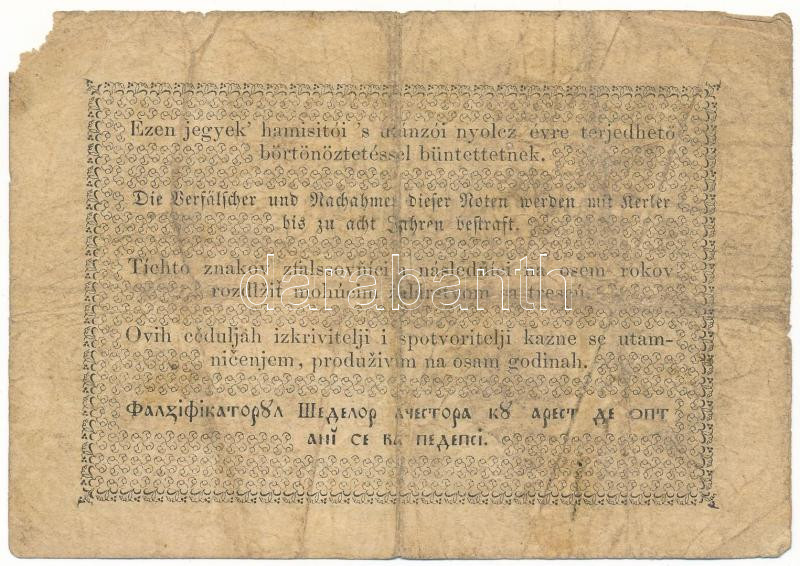 Ezen jegyek' hamisitói 's utánzói nyolcz évre terjedhető
börtönöztetéssel büntettetnek.
Die Verfälscher und Nachahmer dieser Noten werden mit Kerker
bis zu acht Jahren bestraft.
Tíchto znakov zfalšovníci a následníci na osem rokov
rozdlžit
Ovih céduljah izkrivitelji i spotvoritelji kazne se utam-
ničenjem, produživim na osam godinah.
Фалꙋіфікаторꙋл Шеделор ачестора кꙋ арест де опт
анĭ се ва педепсі.
darabanth